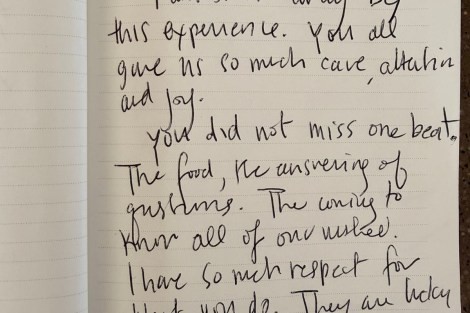 by
this experience. You all
gave us so much care, attention
and joy.
You did not miss one beat.
The food, the answering of
questions. The coming to
know all of our
I have so much respect for
what you do. They are lucky